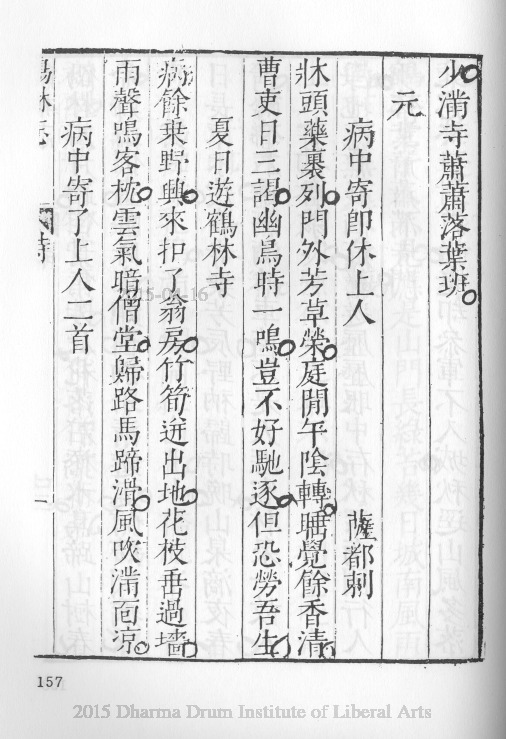 少滿寺蕭蕭落葉班
元
病中寄卽休上人 薩都剌
牀頭藥裹列門外芳草榮庭閒午陰轉睡覺餘香清
曹吏日三謁幽鳥時一鳴豈不好馳逐但恐勞吾生
夏日遊鶴林寺
病餘乗野興來扣了翁房竹筍迸出地花枝垂過墻
雨聲鳴客枕雲氣暗僧堂歸路馬蹄滑風吹滿面涼
病中寄了上人二首
157
2015-04-16
2015 Dharma Drum Institute of Liberal Arts